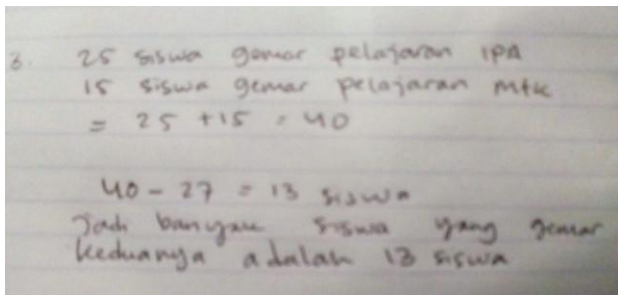 3. 25 siswa gemar pelajaran IPA
15 siswa gemar pelajaran mtk
= 25 + 15 = 40
40 - 27 = 13 siswa
Jadi banyak siswa yang gemar
keduanya adalah 13 siswa